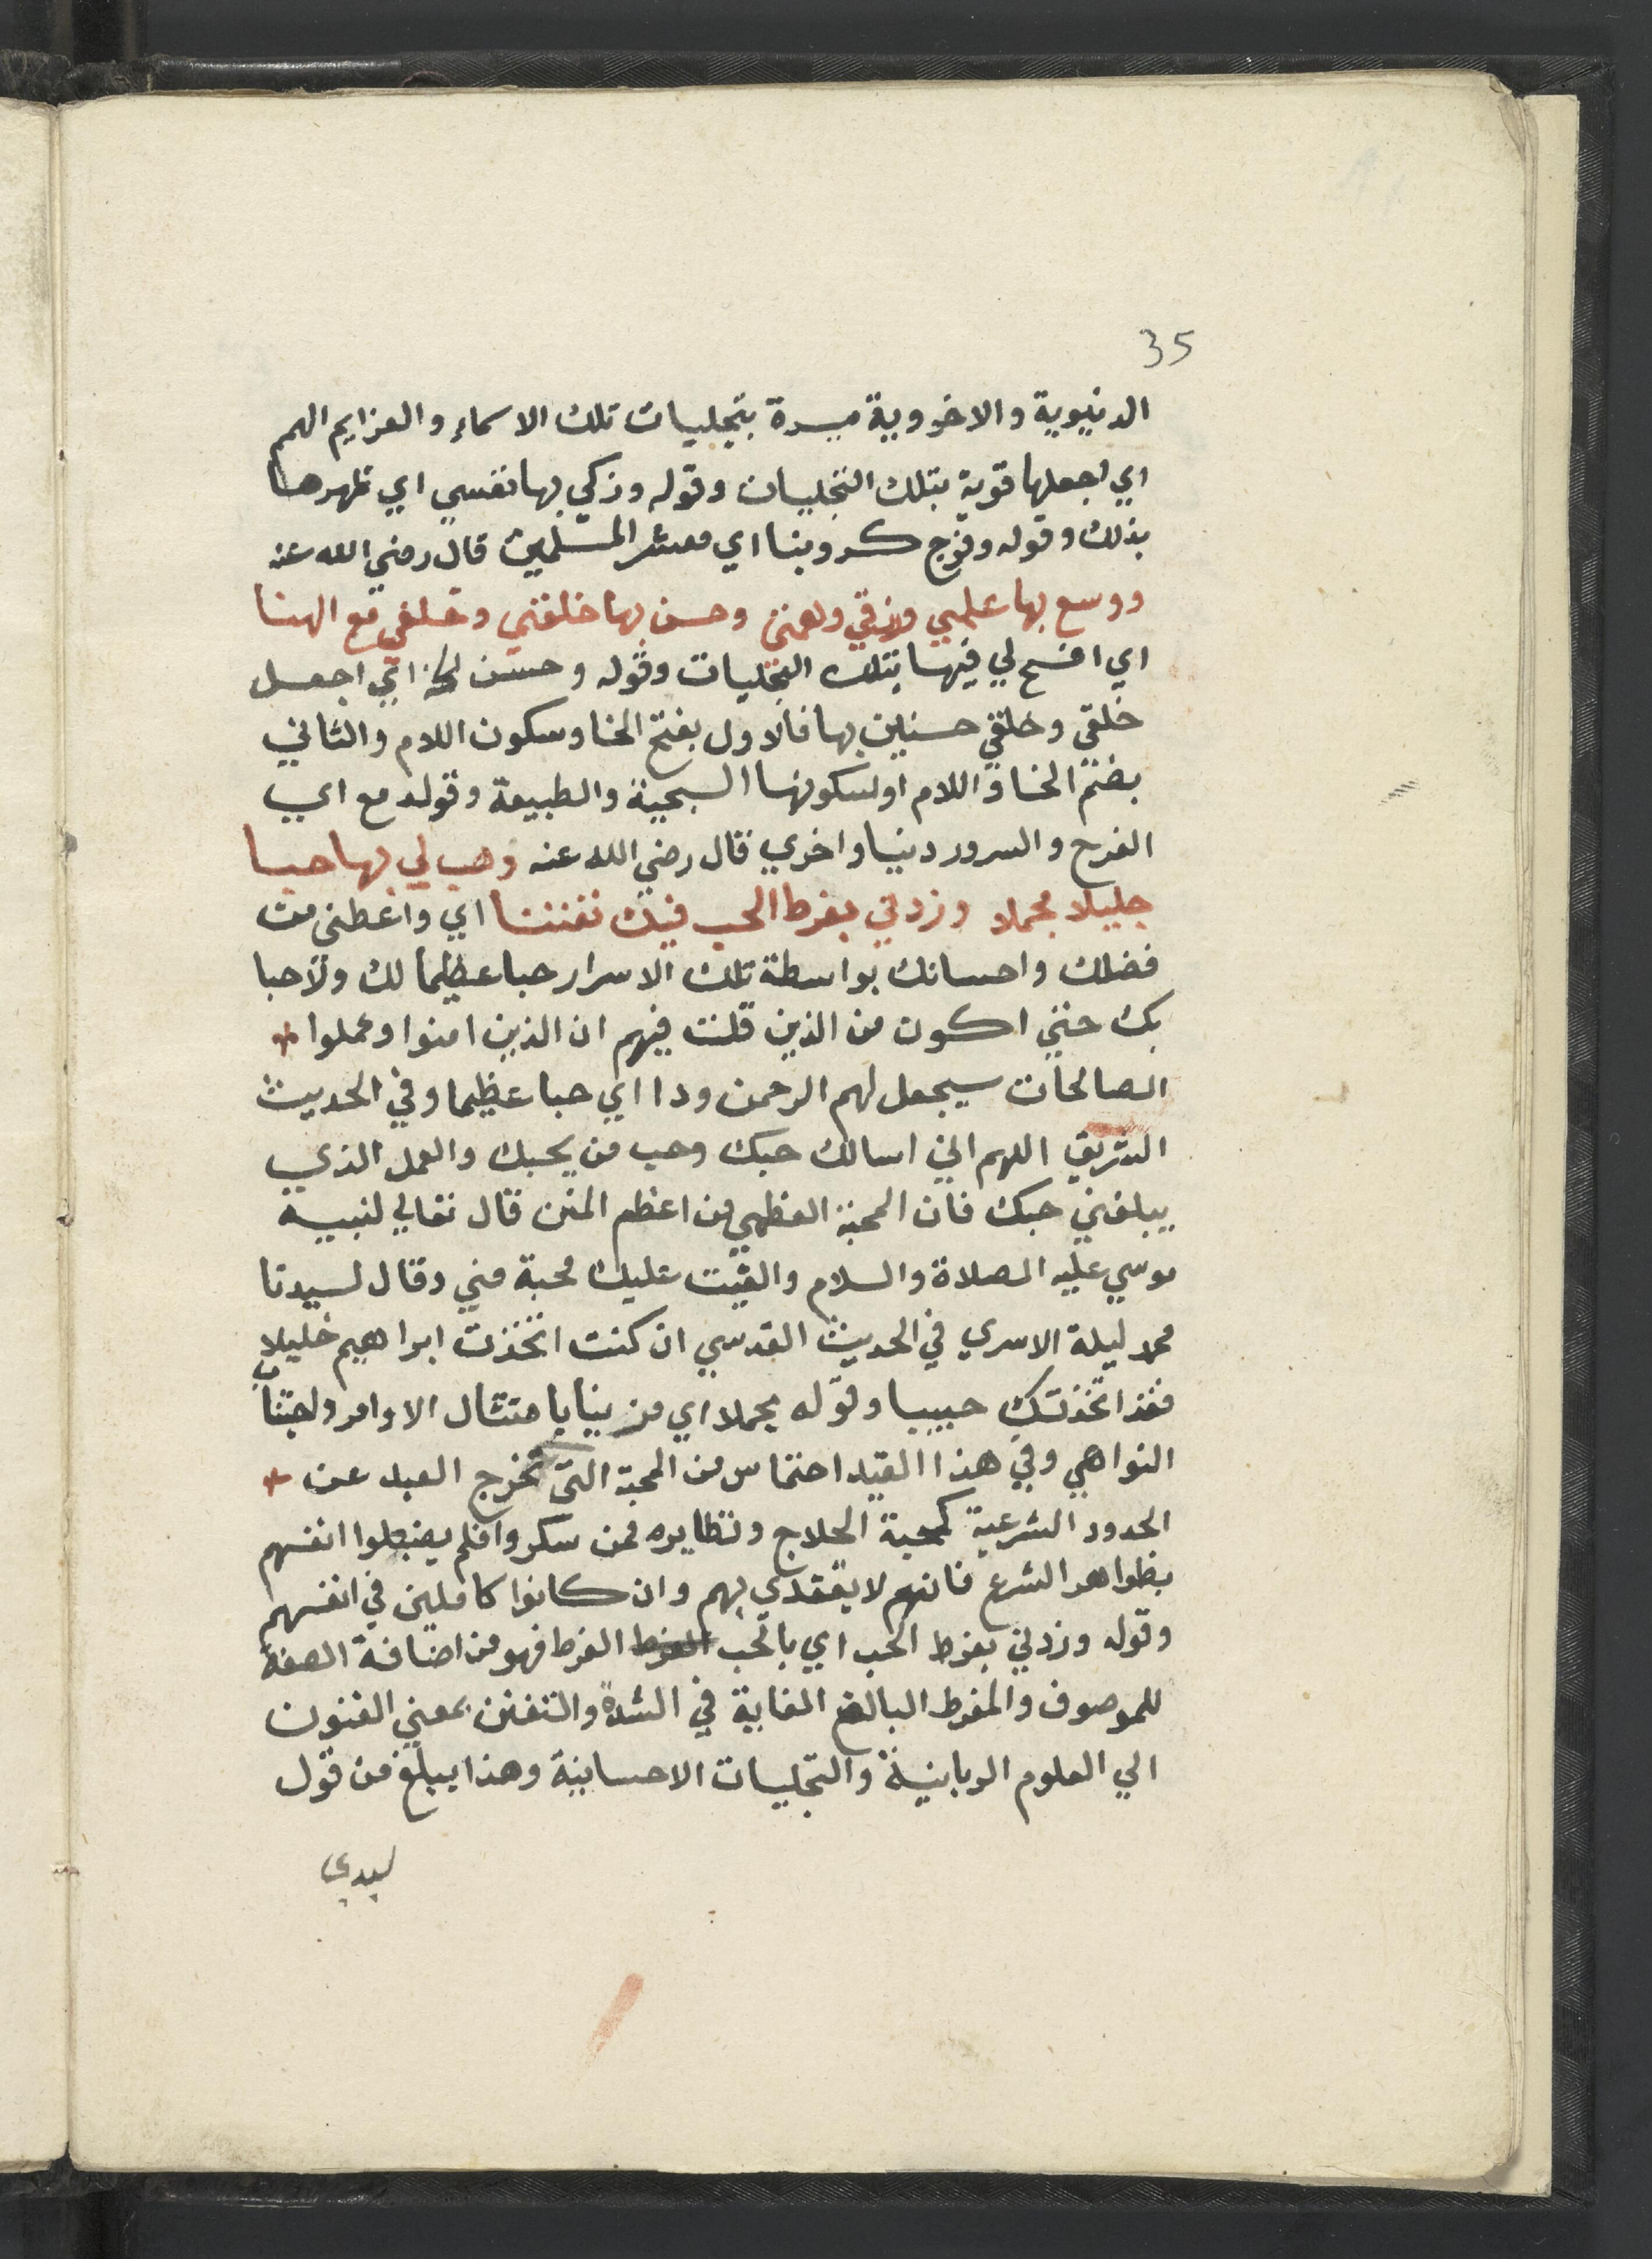 35
الدنيوية والاخروية ميسرة بتجليات تلك الاسماء والعزايم الهمم
اي اجعلها قوية بتلك التجليات وقوله وزكي بها نفسي اي طهرها
بذلك وقوله وفرج كروبنا اي معشر المسلمين قال رضي الله عنه
ووسع بها علمي ورزقي وهمتي وحسن بها خلقتي وخلقي مع الهنا
اي افسح لي فيها بتلك التجليات وقوله وحسن الخ اي اجعل
خلقي وخلقي حسنين بها فالاول بفتح الخا وسكون اللام والثاني
بضم الخا واللام او لسكونها السجية والطبيعة وقوله مع اي
الفرح والسرور دنيا واخري قال رضي الله عنه وهب لي بها حبا
جليلا مجملا وزدني بفرط الحب فيك تفننا اي واعطني من
فضلك واحسانك بواسطة تلك الاسرار حبا عظيما لك ولاحبا
بك حتي اكون من الذين قلت فيهم ان الذين امنوا وعملوا
الصالحات سيجعل لهم الرحمن ودا اي حبا عظيما وفي الحديث
الشريف اللهم اني اسالك حبك وحب من يحبك والعمل الذي
يبلغني حبك فان المحبة العظمي من اعظم المنن قال تعالي لنبيه
موسي عليه الصلاة والسلام والقيت عليك محبة مني وقال لسيدنا
محمد ليلة الاسري في الحديث القدسي ان كنت اتخذت ابراهيم خليلا
فقد اتخذتك حبيبا وقوله مجملا اي مزينا بامتثال الاوامر واجتناب
النواهي وفي هذا القيد احتراس من المحبة التي تخرج العبد عن
الحدود الشرعية كمحبة الحلاج ونظايره ممن سكروا فلم يضبطوا انفسهم
بظواهر الشرع فانهم لا يقتدي بهم وان كانوا كاملين في انفسهم
وقوله وزدني بفرط الحب اي بالحب الفرط فهو من اضافة الصفة
للموصوف والمفرط البالغ الغاية في الشدة والتفنن بمعني الفنون
الي العلوم الربانية والتجليات الاحسانية وهذا يبلغ من قول
سيدي